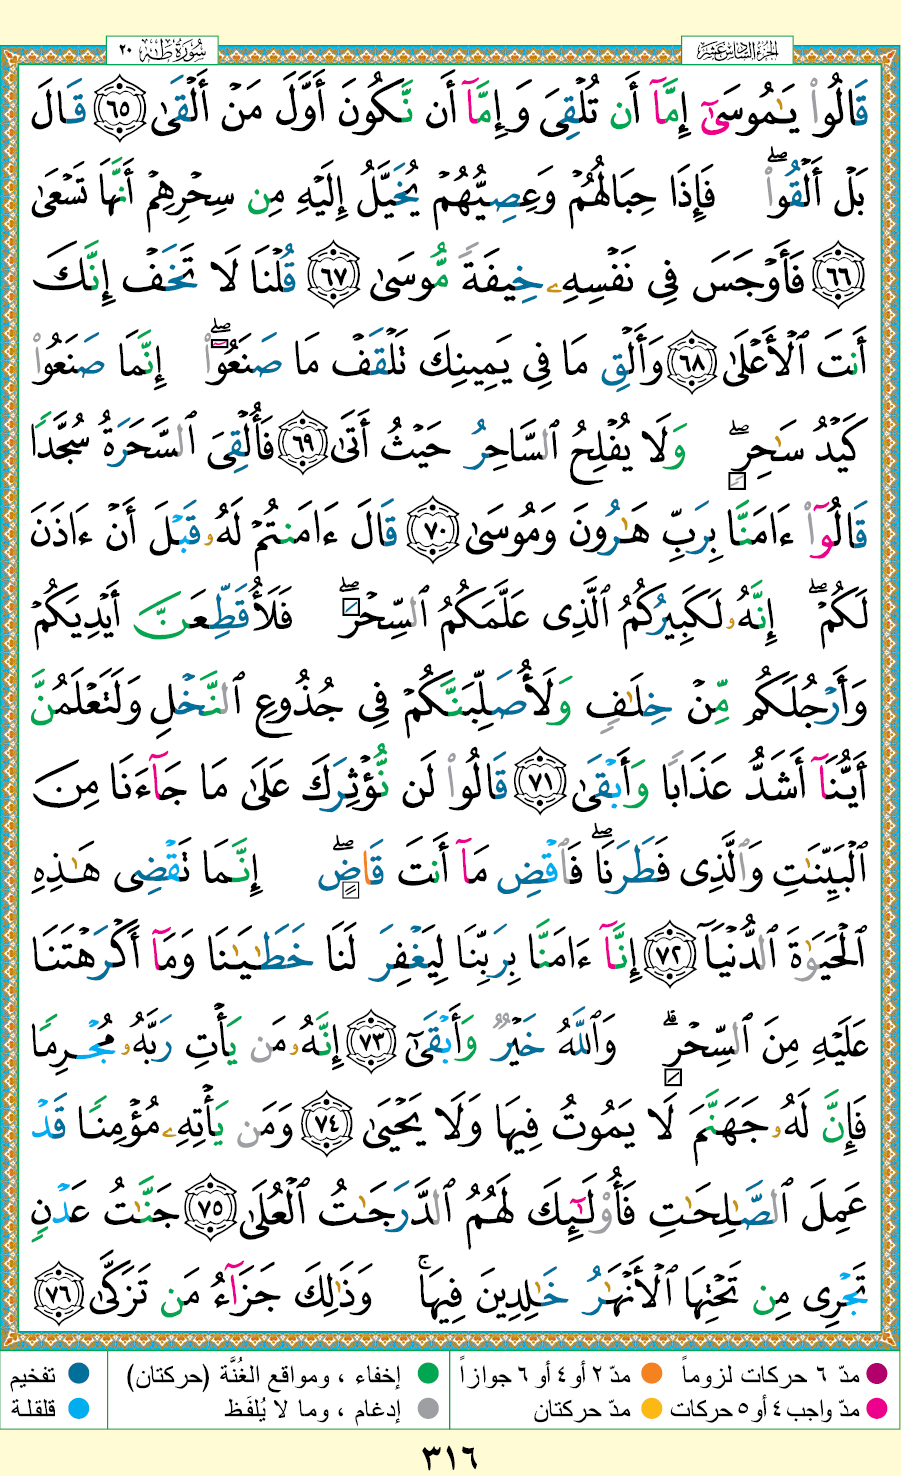 الجزء السادس عشر
سورة طه ٢٠
قَالُوا۟ يَـٰمُوسَىٰٓ إِمَّآ أَن تُلْقِىَ وَإِمَّآ أَن نَّكُونَ أَوَّلَ مَنْ أَلْقَىٰ ٦٥ قَالَ
بَلْ أَلْقُوا۟ ۖ فَإِذَا حِبَالُهُمْ وَعِصِيُّهُمْ يُخَيَّلُ إِلَيْهِ مِن سِحْرِهِمْ أَنَّهَا تَسْعَىٰ
٦٦ فَأَوْجَسَ فِى نَفْسِهِۦ خِيفَةً مُّوسَىٰ ٦٧ قُلْنَا لَا تَخَفْ إِنَّكَ
أَنتَ ٱلْأَعْلَىٰ ٦٨ وَأَلْقِ مَا فِى يَمِينِكَ تَلْقَفْ مَا صَنَعُوٓا۟ ۖ إِنَّمَا صَنَعُوا۟
كَيْدُ سَـٰحِرٍ ۖ وَلَا يُفْلِحُ ٱلسَّاحِرُ حَيْثُ أَتَىٰ ٦٩ فَأُلْقِىَ ٱلسَّحَرَةُ سُجَّدًا
قَالُوٓا۟ ءَامَنَّا بِرَبِّ هَـٰرُونَ وَمُوسَىٰ ٧٠ قَالَ ءَامَنتُمْ لَهُۥ قَبْلَ أَنْ ءَاذَنَ
لَكُمْ ۖ إِنَّهُۥ لَكَبِيرُكُمُ ٱلَّذِى عَلَّمَكُمُ ٱلسِّحْرَ ۖ فَلَأُقَطِّعَنَّ أَيْدِيَكُمْ
وَأَرْجُلَكُم مِّنْ خِلَـٰفٍ وَلَأُصَلِّبَنَّكُمْ فِى جُذُوعِ ٱلنَّخْلِ وَلَتَعْلَمُنَّ
أَيُّنَآ أَشَدُّ عَذَابًا وَأَبْقَىٰ ٧١ قَالُوا۟ لَن نُّؤْثِرَكَ عَلَىٰ مَا جَآءَنَا مِنَ
ٱلْبَيِّنَـٰتِ وَٱلَّذِى فَطَرَنَا ۖ فَٱقْضِ مَآ أَنتَ قَاضٍ ۖ إِنَّمَا تَقْضِى هَـٰذِهِ
ٱلْحَيَوٰةَ ٱلدُّنْيَآ ٧٢ إِنَّآ ءَامَنَّا بِرَبِّنَا لِيَغْفِرَ لَنَا خَطَـٰيَـٰنَا وَمَآ أَكْرَهْتَنَا
عَلَيْهِ مِنَ ٱلسِّحْرِ ۗ وَٱللَّهُ خَيْرٌ وَأَبْقَىٰٓ ٧٣ إِنَّهُۥ مَن يَأْتِ رَبَّهُۥ مُجْرِمًا
فَإِنَّ لَهُۥ جَهَنَّمَ لَا يَمُوتُ فِيهَا وَلَا يَحْيَىٰ ٧٤ وَمَن يَأْتِهِۦ مُؤْمِنًا قَدْ
عَمِلَ ٱلصَّـٰلِحَـٰتِ فَأُو۟لَـٰٓئِكَ لَهُمُ ٱلدَّرَجَـٰتُ ٱلْعُلَىٰ ٧٥ جَنَّـٰتُ عَدْنٍ
تَجْرِى مِن تَحْتِهَا ٱلْأَنْهَـٰرُ خَـٰلِدِينَ فِيهَا ۚ وَذَٰلِكَ جَزَآءُ مَن تَزَكَّىٰ ٧٦
مدّ ٦ حركات لزوماً مدّ ٢ أو ٤ أو ٦ جوازاً إخفاء ، ومواقع الغُنَّة (حركتان) تفخيم
مدّ واجب ٤ أو ٥ حركات مدّ حركتان إدغام ، وما لا يُلفَظ قلقلة
٣١٦